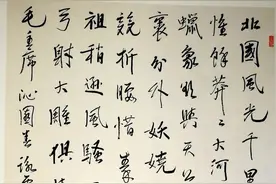 北國風光千里
惟餘莽々大河
蠟象欲與天公
裹分外妖嬈
競折腰惜秦
祖稍遜風騷
弓射大雕俱
毛主席沁園春詠